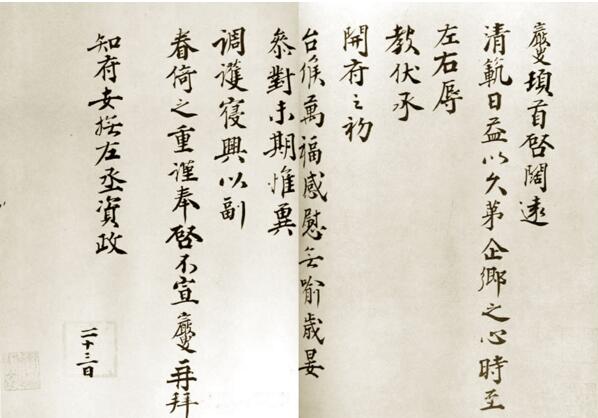 夔頓首啓闊遠
清範日益以久第企鄉之心時至
左右辱
教伏承
開府之初
台候萬福感慰無喻歲晏
叅對未期惟冀
調護寢興以副
眷倚之重謹奉啓不宣夔再拜
知府安撫左丞資政
二十三日